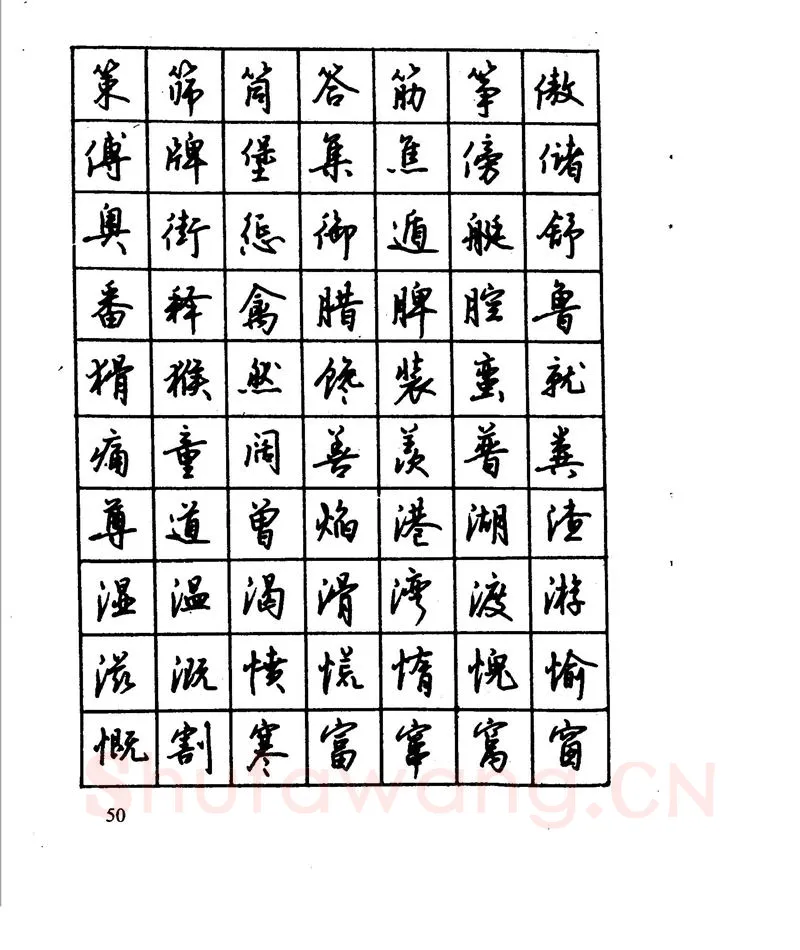 策筛筒答筋筝傲
傅牌堡集焦傍储
奥街惩御遁艇舒
番释禽腊脾腔鲁
猾猴然馋装蛮就
痛童阔善羡普粪
尊道曾焰港湖渣
湿温渴滑湾渡游
滋溉愤慌惰愧愉
慨割寒富窜窝窗
Shufawang.CN
50